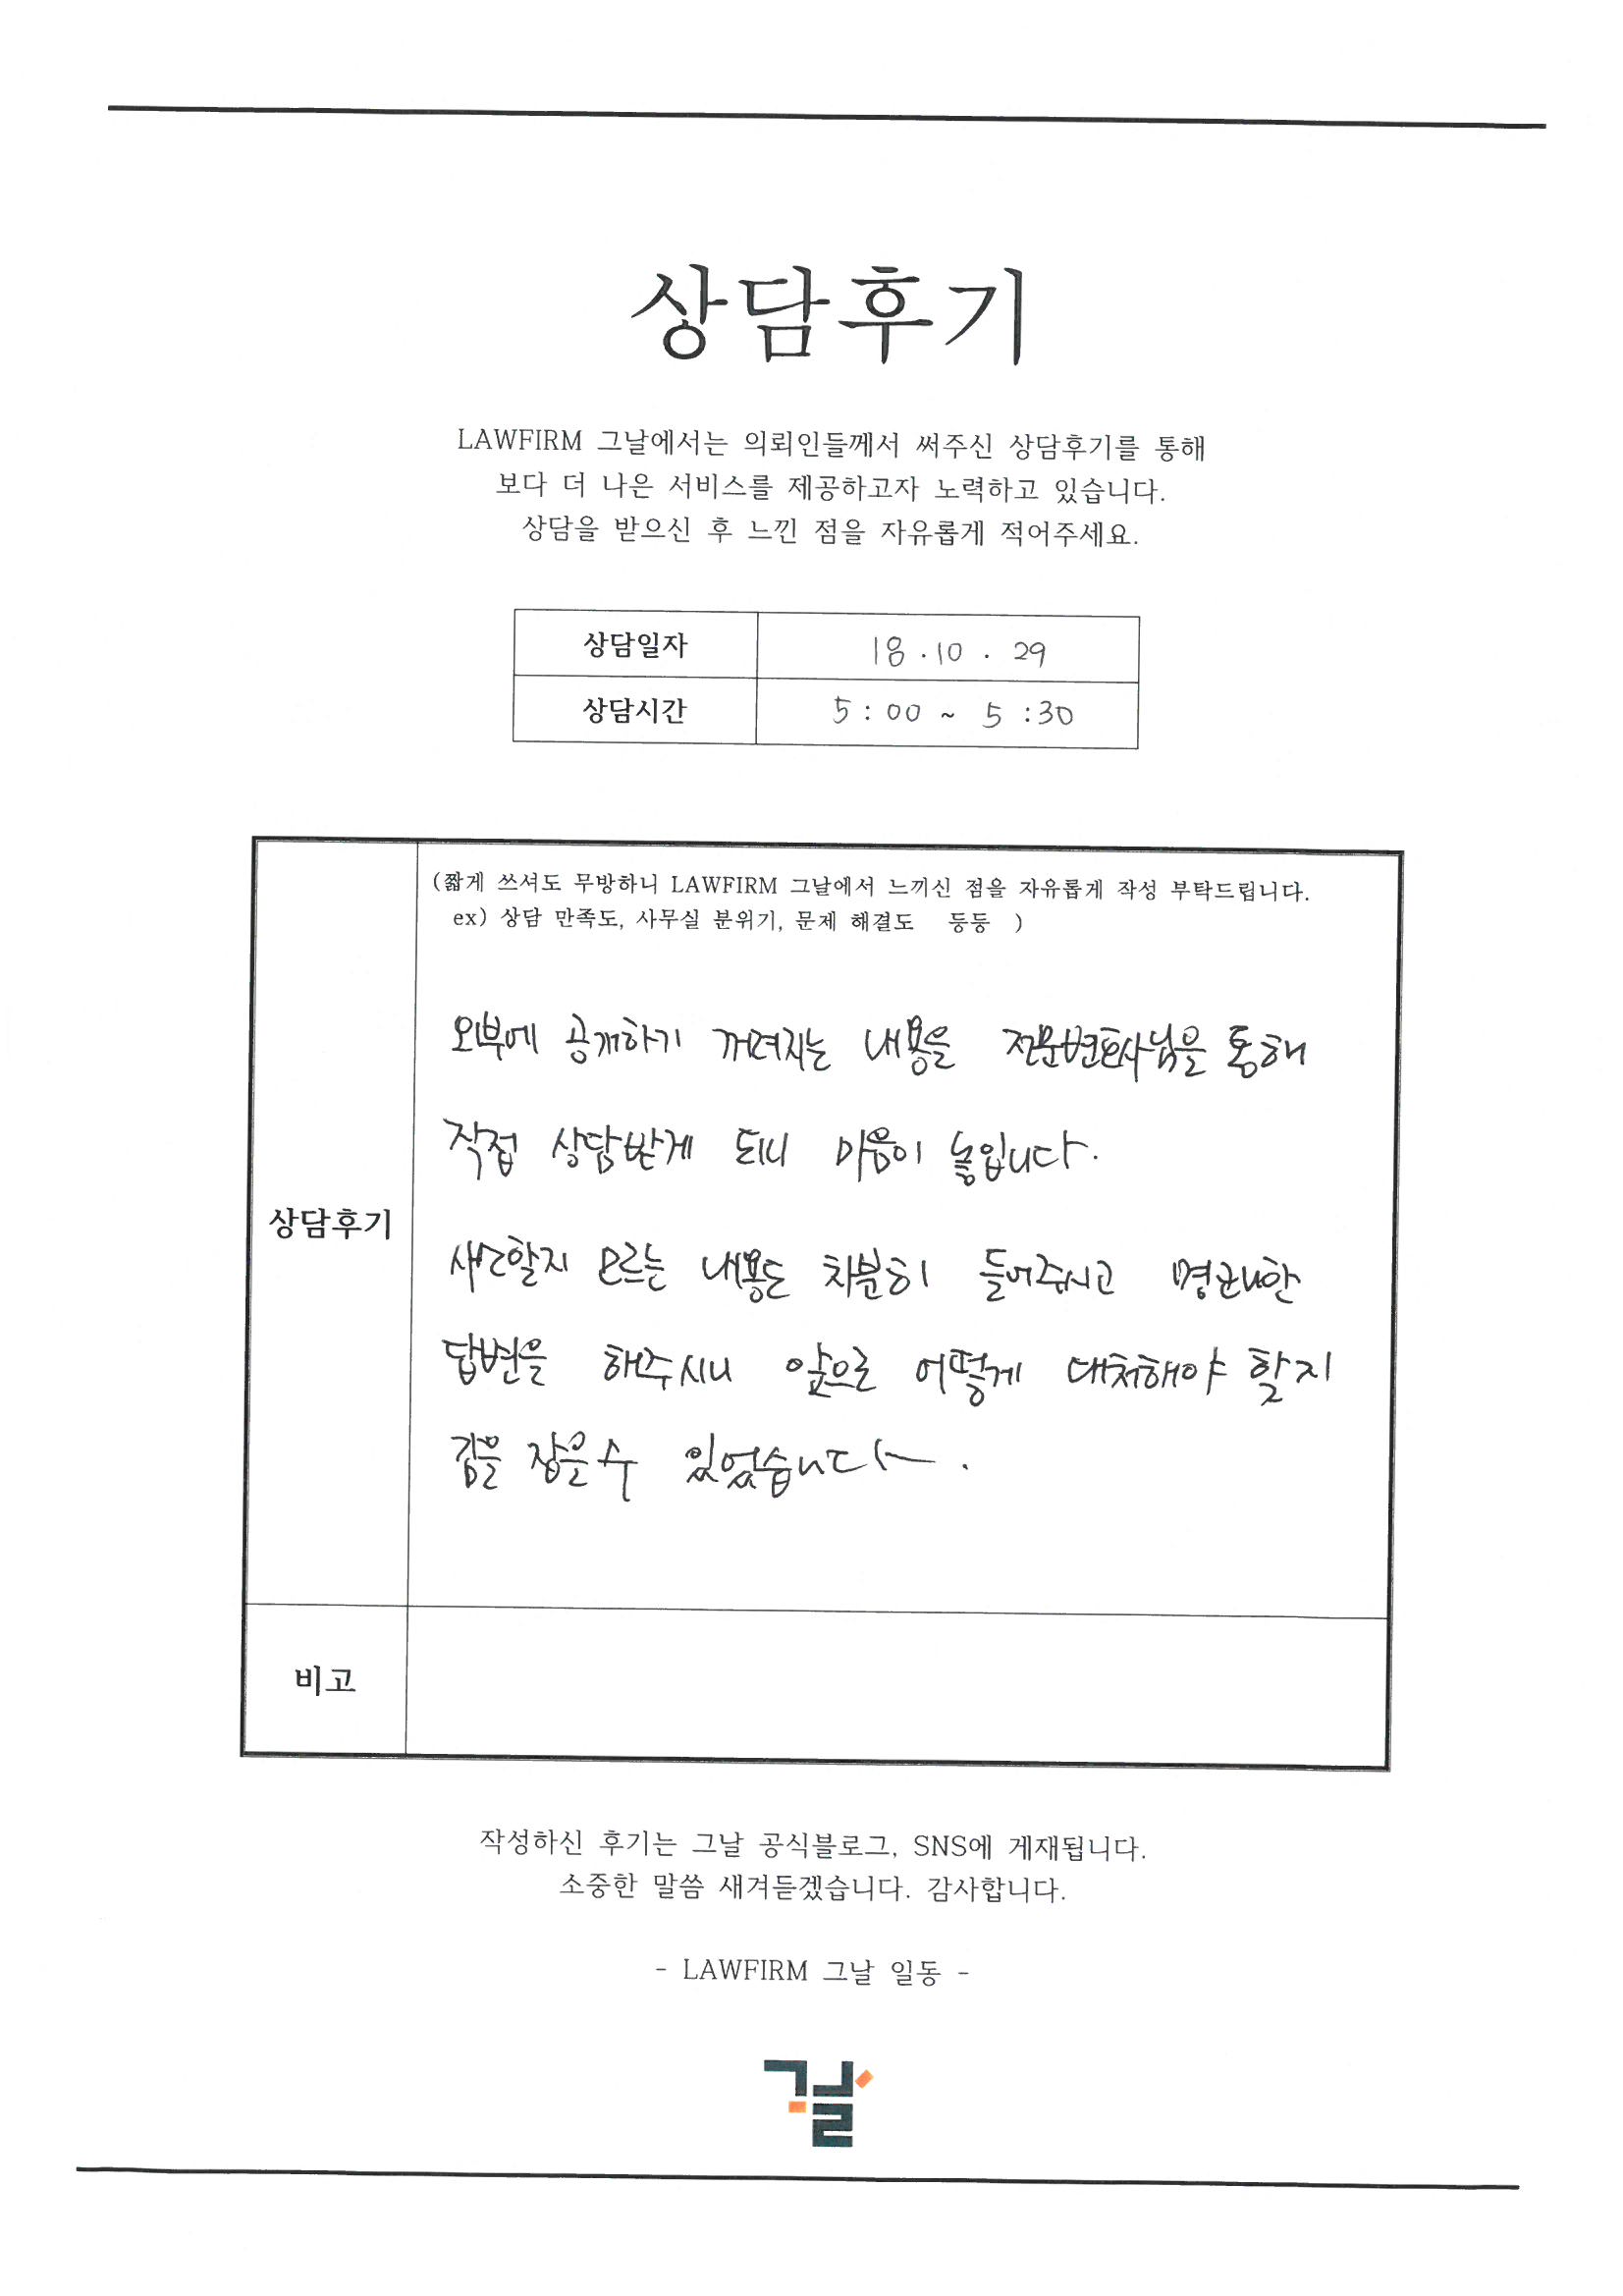 상담후기
LAWFIRM 그날에서는 의뢰인들께서 써주신 상담후기를 통해
보다 더 나은 서비스를 제공하고자 노력하고 있습니다.
상담을 받으신 후 느낀 점을 자유롭게 적어주세요.
상담일자 18.10.29
상담시간 5:00 ~ 5:30
(짧게 쓰셔도 무방하니 LAWFIRM 그날에서 느끼신 점을 자유롭게 작성 부탁드립니다.
ex) 상담 만족도, 사무실 분위기, 문제 해결도 등등 )
외부에 공개하기 꺼려지는 내용을 전문변호사님을 통해
직접 상담받게 되니 마음이 놓입니다.
상담후기
사소할지 모르는 내용도 차분히 들어주시고 명료한
답변을 해주시니 앞으로 어떻게 대처해야 할지
감을 잡을 수 있었습니다.
비고
작성하신 후기는 그날 공식블로그, SNS에 게재됩니다.
소중한 말씀 새겨듣겠습니다. 감사합니다.
- LAWFIRM 그날 일동 -
그날